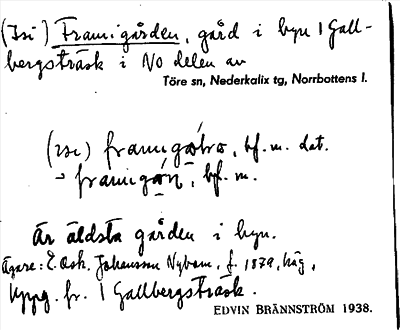 (Isi) Framigården, gård i byn 1 Gall-
bergsträsk i NO delen av
Töre sn, Nederkalix tg, Norrbottens l.
(ɪsɪ) framigo̱lro, bf. m. dat.
framigo̱n, bf. m.
Är äldsta gården i byn.
Ägare: E. Osk. Johansson Nybom, f. 1879, häg,
Uppg. fr. 1 Gallbergsträsk.
EDVIN BRÄNNSTRÖM 1938.